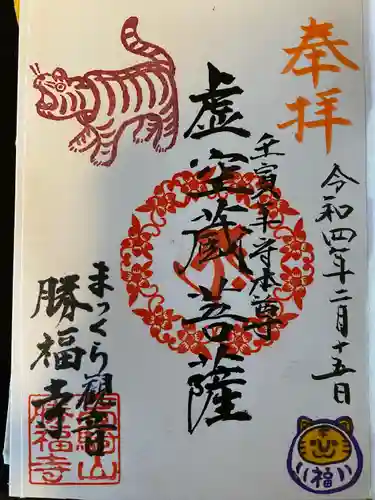 奉拝
令和四年二月十五日
壬寅年守本尊
虚空蔵菩薩
まっくら観音
勝福寺
福